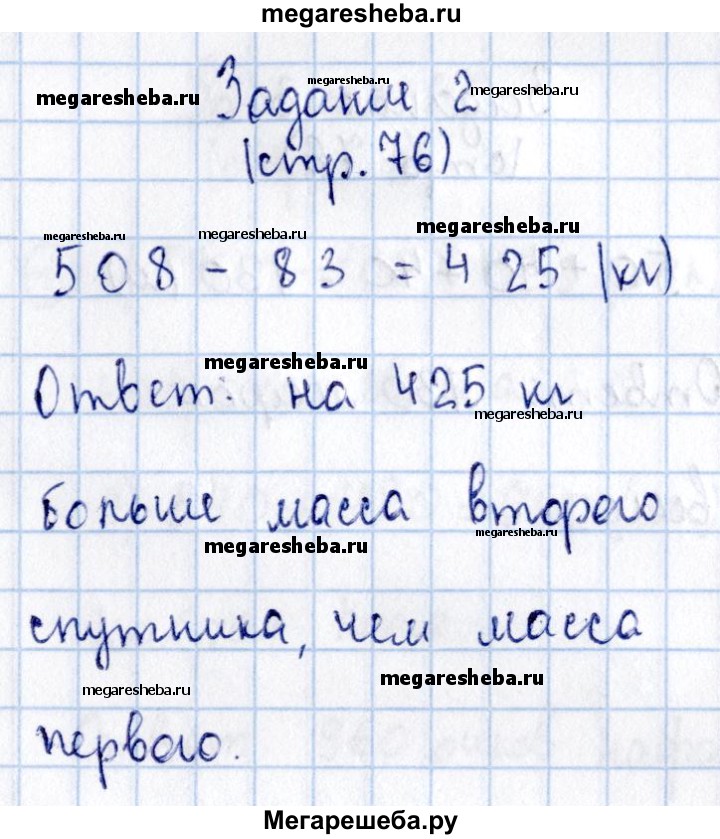 megaresheba.ru
megaresheba.ru
megaresheba.ru
megaresheba.ru
Задание 2
(стр. 76)
megaresheba.ru
megaresheba.ru
megaresheba.ru
508 - 83 = 425 (кг)
megaresheba.ru
Ответ: на 425 кг
megaresheba.ru
больше масса второго
megaresheba.ru
megaresheba.ru
спутника, чем масса
megaresheba.ru
megaresheba.ru
первого.
Мегарешеба.ру